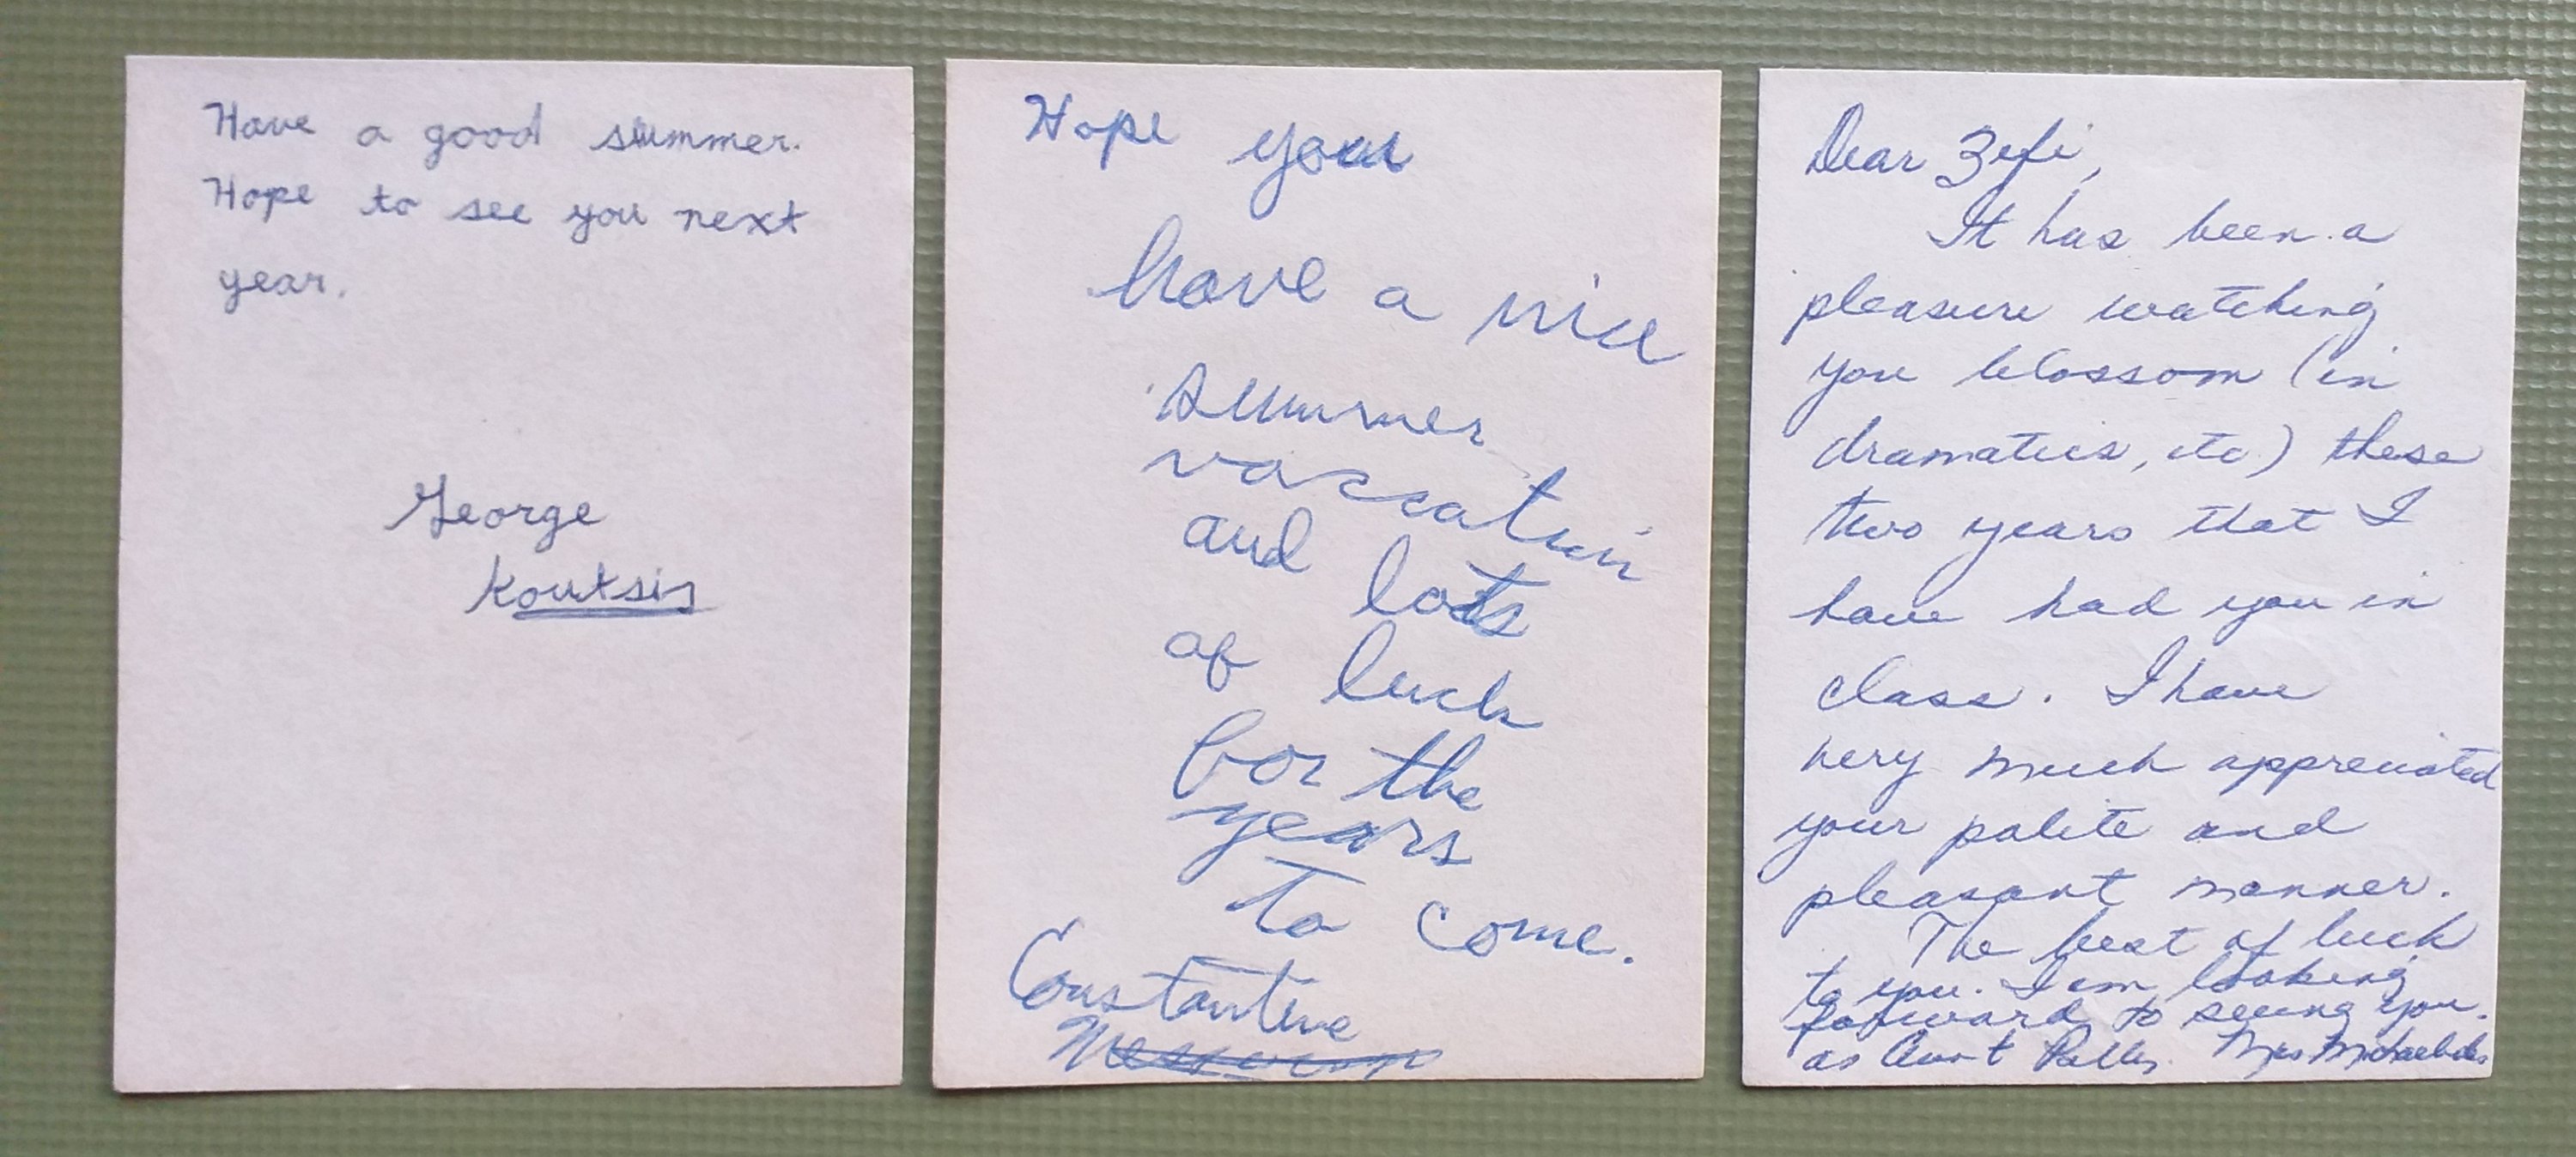 Have a good summer.
Hope to see you next
year.
George
Koutsis
Hope you
have a nice
summer
vaccation
and lots
of luck
for the
years
to come.
Constantine
Dear Zefi,
It has been a
pleasure watching
you blossom (in
dramatics, etc) these
two years that I
have had you in
class. I have
very much appreciated
your polite and
pleasant manner.
The best of luck
to you. I am looking
forward to seeing you
as Aunt Polly. Mrs Michaelides